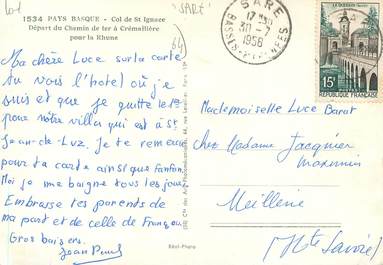 1534 PAYS BASQUE - Col de St Ignace
Départ du Chemin de fer à Crémaillère
pour la Rhune
SARE
64
Ma chère Luce sur la carte
tu vois l'hotel où je
suis et que je quitte le 1er
pour notre villa qui est à St
Jean-de-Luz. Je te remercie
pour ta carte ainsi que Fanfan.
Moi je me baigne tous les jours
Embrasse tes parents de
ma part et de celle de François
Gros baisers.
Jean Paul
SARE
30-7
1958
BASSES-PYRENEES
LE QUESNOY
15F
REPUBLIQUE FRANÇAISE
Mademoiselle Luce
chez Madame Jacquier
Maximin
Meillerie
(Hte Savoie)